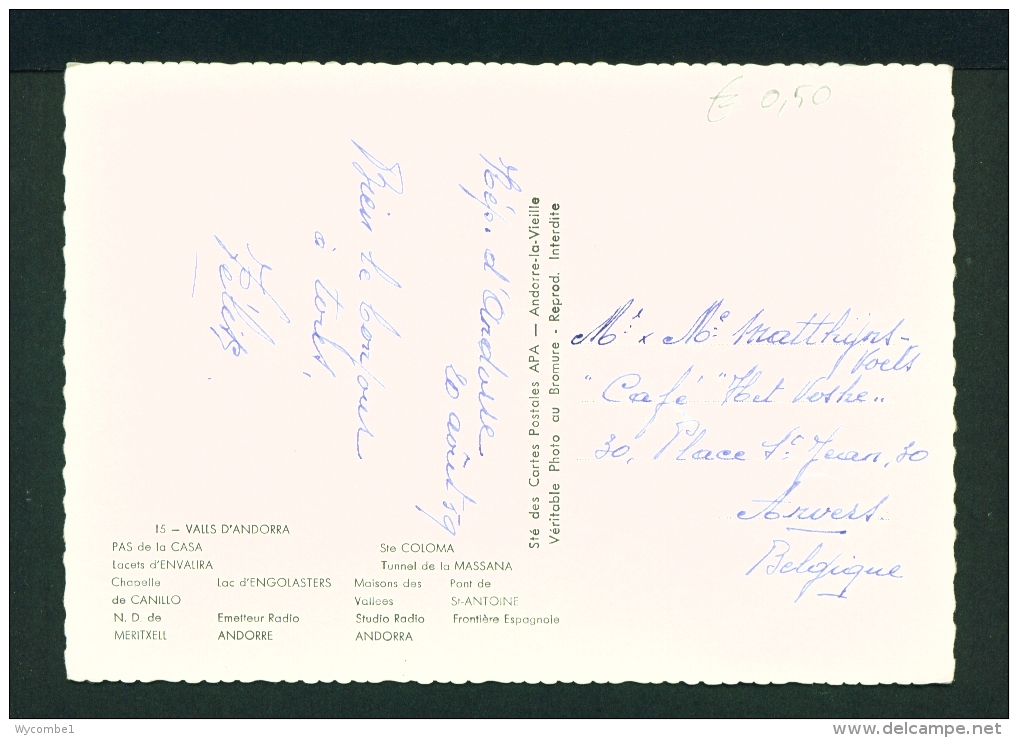 € 0,50
Rép. d'Andorre
20 août 59
Bien le bonjour
à tous.
Mr x Me Matthijns-
Voets
"Café "Het Veske"
30, Place St Jean, 30
Anvers.
Belgique
Sté des Cartes Postales APA — Andorre-la-Vieille
Véritable Photo au Bromure - Reprod. Interdite
15 — VALLS D'ANDORRA
PAS de la CASA
Ste COLOMA
Lacets d'ENVALIRA
Tunnel de la MASSANA
Chapelle
de CANILLO
Lac d'ENGOLASTERS
Maisons des
Vallees
Pont de
St-ANTOINE
N. D. de
MERITXELL
Emetteur Radio
ANDORRE
Studio Radio
ANDORRA
Frontière Espagnole
Wycombe1
www.delcampe.net